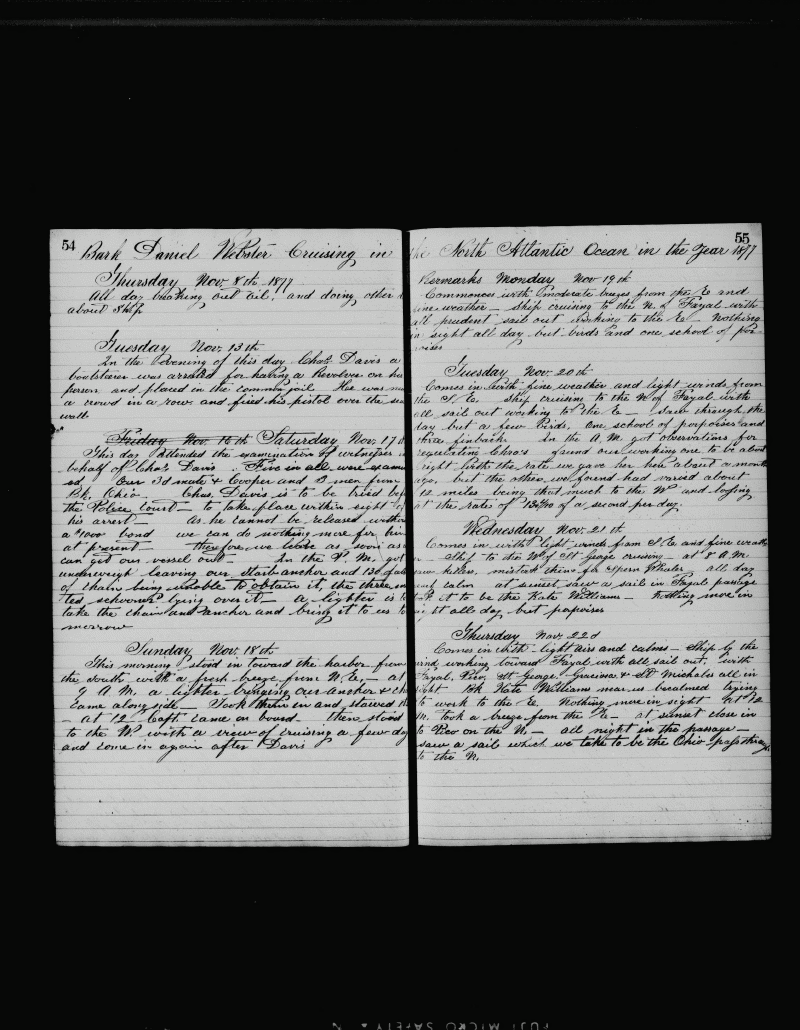 54
Bark Daniel Webster Cruising in
Thursday Nov. 8th 1877
All day breaking out oil, and doing other
about ship
Tuesday Nov. 13th
In the evening of this day Chas. Davis a
boatsteerer was arrested for having a Revolver on his
person and placed in the common jail He was in
a crowd in a row and fired his pistol over the sea
wall
Friday Nov. 16th Saturday Nov. 17th
This day attended the examination of witnesses in
behalf of Chas. Davis. Five in all were exam
ed Our 3d mate & Cooper and 3 men from
Bk. Ohio Chas. Davis is to be tried bef
the Police court to take place within eight
his arrest As he cannot be released without
a $1000 bond we can do nothing more for him
at present therefore we leave as soon as
can get our vessel out In the P.M. got
underweigh leaving our Starb anchor and 130 fath
of chain being unable to obtain it, the three mas
ted schooner lying over it A lighter is to
take the chain and anchor and bring it to us to
morrow
Sunday Nov. 18th
This morning stood in toward the harbor from
the south with a fresh breeze from N.E. at
9 A.M. a lighter bringing our anchor & ch
came along side Took them in and stowed th
at 12 Capt. came on board then stood
to the W. with a view of cruising a few day
and come in again after Davis
55
the North Atlantic Ocean in the Year 1877
Remarks Monday Nov 19th
Commences with moderate breezes from the E and
fine weather ship cruising to the N. of Fayal with
all prudent sail out working to the E Nothing
in sight all day but birds and one school of por-
poises
Tuesday Nov. 20th
Comes in with fine weather and light winds from
the S.E. Ship cruising to the N of Fayal with
all sail out working to the E Saw through the
day but a few birds, One school of porpoises and
three finback In the A.M. got observations for
regulating Chro's found our working one to be about
right with the rate we gave her here about a month
ago, but the other we found had varied about
12 miles being that much to the W and losing
at the rates of of a second per day.
Wednesday Nov. 21th
Comes in with light winds from S.E and fine weath
er Ship to the W of St George cruising at 8 A.M.
saw killers, mistook them for Sperm Whales all day
calm at sunset saw a sail in Fayal passage
it to be the Kate Williams Nothing more in
sight all day but porpoises
Thursday Nov. 22d
Comes in with light airs and calms Ship by the
wind working toward Fayal with all sail out, with
Fayal, Pico, St George, Graciosa & St Michaels all in
sight Bk Kate Williams near us becalmed trying
to work to the E. Nothing more in sight At 12
M. took a breeze from the E at sunset close in
to Pico on the N. all night in the passage
saw a sail which we take to be the Ohio pass through
to the N.
FUJI MICRO SAFETY